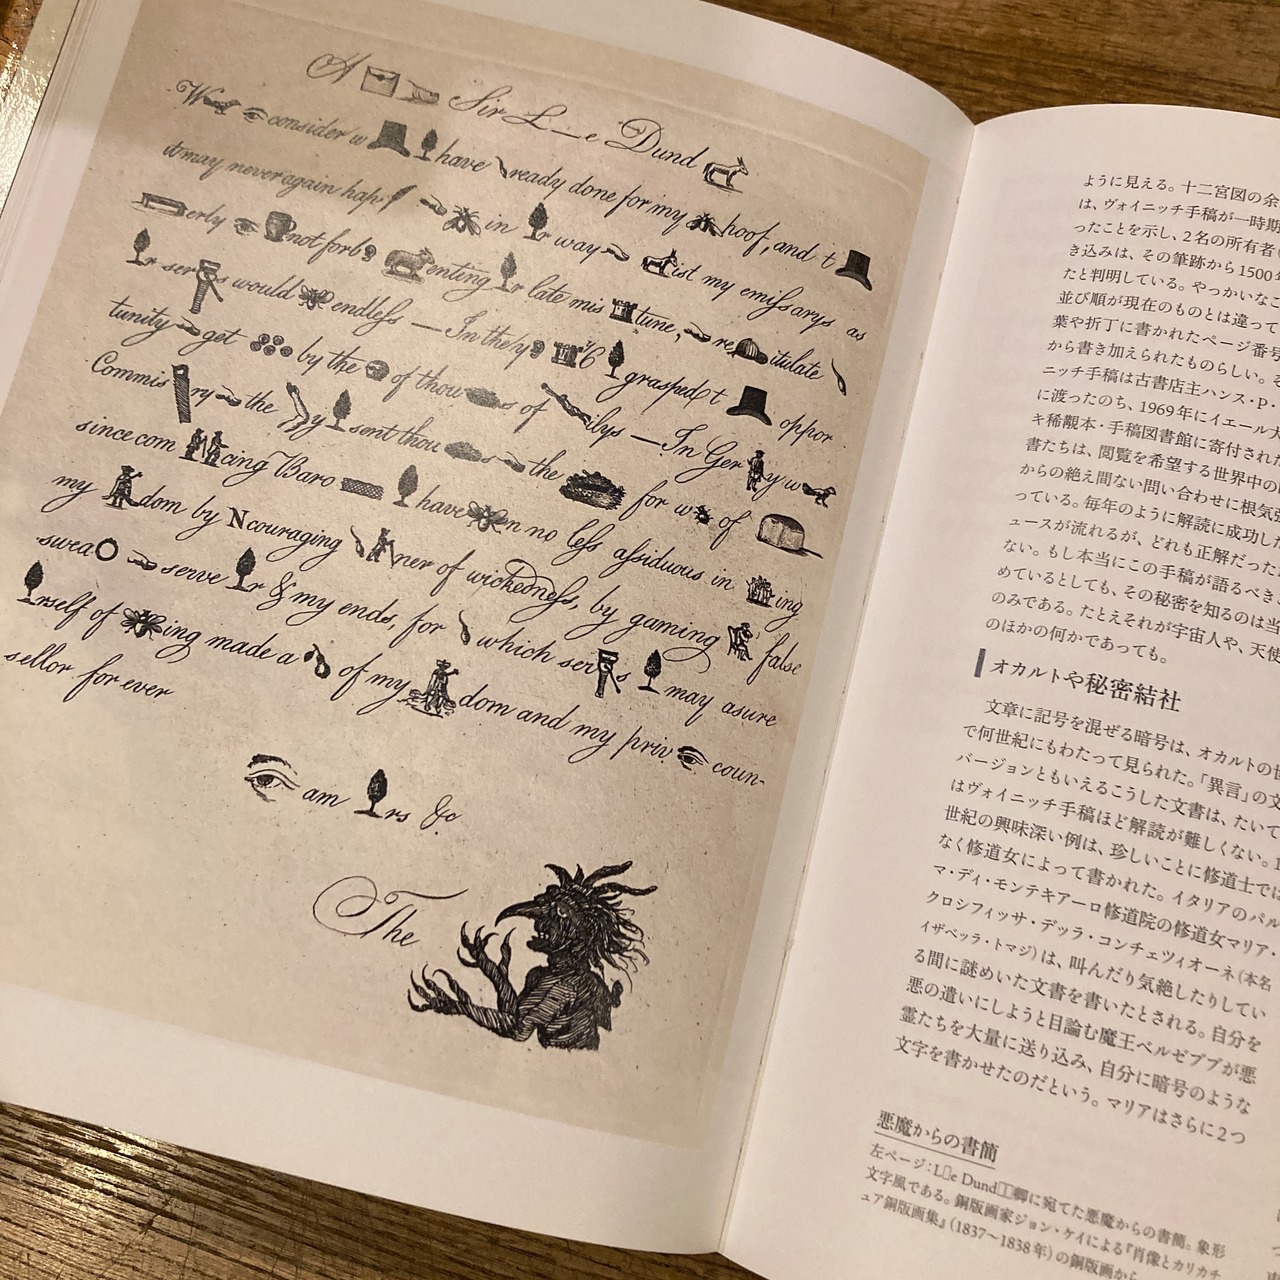 A Sir L—e Dund
W consider w have ready done for my hoof, and t
it may never again hap in r way ist my emissarys as
erly not forb enting r late mis tune, re itulate
r ser s would endless — In the y grasped t oppor
tunity get by the of thou s of ilys — In Ger y w
Commis ry the y sent thou the for w of
since com cing Baro have n no less assiduous in ing
my dom by Ncouraging ner of wickedness, by gaming false
swea serve r & my ends, for which ser s may asure
rself of ing made a of my dom and my priv coun-
sellor for ever
am rs &c
The
ように見える。十二宮図の余
は、ヴォイニッチ手稿が一時期
ったことを示し、2名の所有者
き込みは、その筆跡から1500
たと判明している。やっかいなこ
並び順が現在のものとは違って
葉や折丁に書かれたページ番号
から書き加えられたものらしい。そ
ニッチ手稿は古書店主ハンス・P・
に渡ったのち、1969年にイエール大
キ稀覯本・手稿図書館に寄付された
書たちは、閲覧を希望する世界中の
からの絶え間ない問い合わせに根気
っている。毎年のように解読に成功した
ュースが流れるが、どれも正解だった
ない。もし本当にこの手稿が語るべき
めているとしても、その秘密を知るのは当
のみである。たとえそれが宇宙人や、天使
のほかの何かであっても。
オカルトや秘密結社
文章に記号を混ぜる暗号は、オカルトの世
で何世紀にもわたって見られた。「異言」の文
バージョンともいえるこうした文書は、たいて
はヴォイニッチ手稿ほど解読が難しくない。1
世紀の興味深い例は、珍しいことに修道士では
なく修道女によって書かれた。イタリアのパル
マ・ディ・モンテキアーロ修道院の修道女マリア・
クロシフィッサ・デッラ・コンチェツィオーネ(本名
イザベッラ・トマジ)は、叫んだり気絶したりしてい
る間に謎めいた文書を書いたとされる。自分を
悪の遣いにしようと目論む魔王ベルゼブブが悪
霊たちを大量に送り込み、自分に暗号のような
文字を書かせたのだという。マリアはさらに2つ
悪魔からの書簡
左ページ:L□e Dund□□卿に宛てた悪魔からの書簡。象形
文字風である。銅版画家ジョン・ケイによる『肖像とカリカチ
ュア銅版画集』(1837〜1838年)の銅版画から